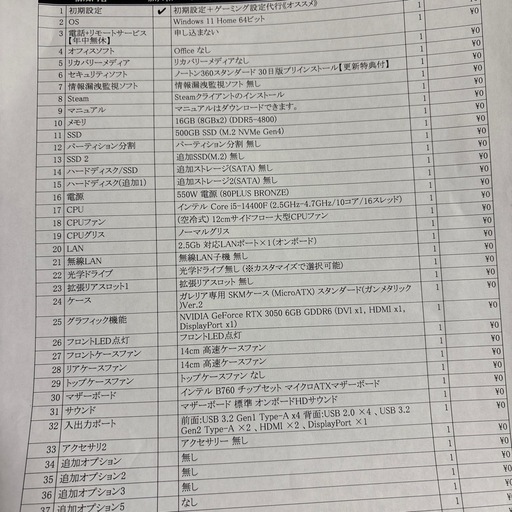 1 初期設定 ✔ 初期設定＋ゲーミング設定代行《オススメ》 1 ¥0
2 OS Windows 11 Home 64ビット 1 ¥0
3 電話+リモートサービス 申し込まない 1 ¥0
【年中無休】
4 オフィスソフト Office なし 1 ¥0
5 リカバリーメディア リカバリーメディアなし 1 ¥0
6 セキュリティソフト ノートン360スタンダード 30日版プリインストール【更新特典付】 1 ¥0
7 情報漏洩監視ソフト 情報漏洩監視ソフト 無し 1 ¥0
8 Steam Steamクライアントのインストール 1 ¥0
9 マニュアル マニュアルはダウンロードできます。 1 ¥0
10 メモリ 16GB (8GBx2) (DDR5-4800) 1 ¥0
11 SSD 500GB SSD (M.2 NVMe Gen4) 1 ¥0
12 パーティション分割 パーティション分割 無し 1 ¥0
13 SSD 2 追加SSD(M.2) 無し 1 ¥0
14 ハードディスク/SSD 追加ストレージ(SATA) 無し 1 ¥0
15 ハードディスク(追加1) 追加ストレージ2(SATA) 無し 1 ¥0
16 電源 550W 電源 (80PLUS BRONZE) 1 ¥0
17 CPU インテル Core i5-14400F (2.5GHz-4.7GHz/10コア/16スレッド) 1 ¥0
18 CPUファン (空冷式) 12cmサイドフロー大型CPUファン 1 ¥0
19 CPUグリス ノーマルグリス 1 ¥0
20 LAN 2.5Gb 対応LANポート×1(オンボード) 1 ¥0
21 無線LAN 無線LAN子機 無し 1 ¥0
22 光学ドライブ 光学ドライブ無し (※カスタマイズで選択可能) 1 ¥0
23 拡張リアスロット1 拡張リアスロット 無し 1 ¥0
24 ケース ガレリア専用 SKMケース (MicroATX) スタンダード(ガンメタリック 1 ¥0
)Ver.2
25 グラフィック機能 NVIDIA GeForce RTX 3050 6GB GDDR6 (DVI x1, HDMI x1, 1 ¥0
DisplayPort x1)
26 フロントLED点灯 フロントLED点灯 1 ¥0
27 フロントケースファン 14cm 高速ケースファン 1 ¥0
28 リアケースファン 14cm 高速ケースファン 1 ¥0
29 トップケースファン トップケースファン なし 1 ¥0
30 マザーボード インテル B760 チップセット マイクロATXマザーボード 1 ¥0
31 サウンド マザーボード 標準 オンボードHDサウンド 1 ¥0
32 入出力ポート 前面:USB 3.2 Gen1 Type-A x4 背面:USB 2.0 ×4 、USB 3.2 1 ¥0
Gen2 Type-A ×2 、HDMI ×2 、DisplayPort ×1
33 アクセサリ2 アクセサリー 無し 1 ¥0
34 追加オプション 無し 1 ¥0
35 追加オプション2 無し 1 ¥0
36 追加オプション3 無し 1 ¥0
37 追加オプション5 なし 1 ¥0